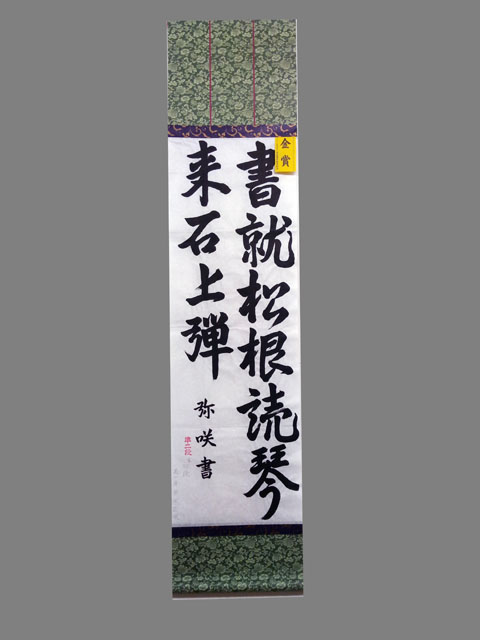 金賞
書就松根読琴
来石上弾
弥咲書
準二段